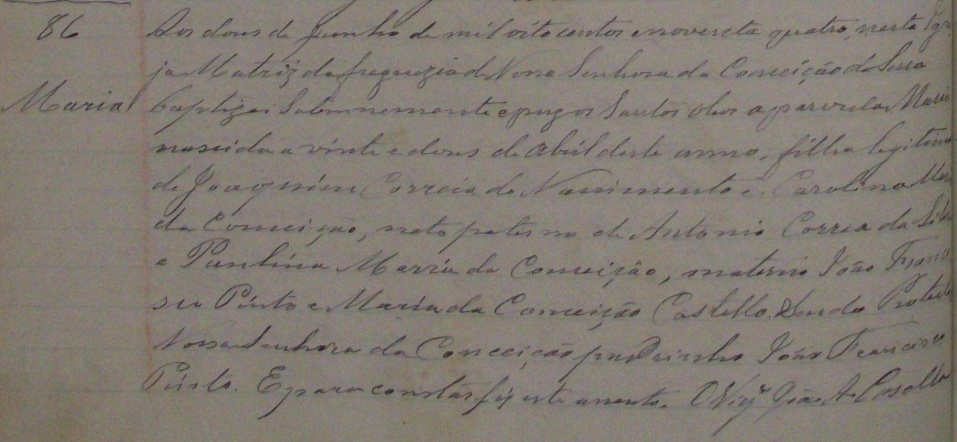 86
Aos doses de Junho de mil oito centos e noventa quatro, nesta Igre
ja Matriz da freguezia de Nossa Senhora da Conceição da Serra
Maria
baptizei Solemnemente e puz os Santos oleos a parvula Maria
nascida a vinte e doves de Abril deste anno, filha legitima
de Joaquim Correia do Nascimento e Carolina Maria
da Conceição, neta paterna de Antonio Correa da Silva
e Paulina Maria da Conceição, materno João Franc
sco Pinto e Maria da Conceição Castello. Sendo Protect
Nossa Senhora da Conceição padrinho João Francisco
Pinto. E para constar fiz este assento. O Vigº João A.